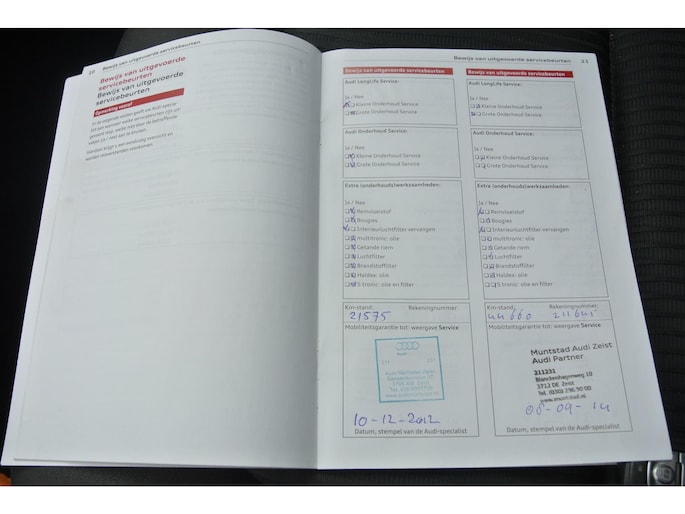 20 Bewijs van uitgevoerde servicebeurten
Bewijs van uitgevoerde
servicebeurten
Bewijs van uitgevoerde
servicebeurten
Opmerking vooraf
Bewijs van uitgevoerde servicebeurten 21
Bewijs van uitgevoerde servicebeurten
Audi LongLife Service:
Ja / Nee
Kleine Onderhoud Service
Grote Onderhoud Service
Audi Onderhoud Service:
Ja / Nee
Kleine Onderhoud Service
Grote Onderhoud Service
Extra (onderhouds)werkzaamheden:
Ja / Nee
Remvloeistof
Bougies
Interieurluchtfilter vervangen
multitronic: olie
Getande riem
Luchtfilter
Brandstoffilter
Haldex: olie
S tronic: olie en filter
Km-stand: Rekeningnummer:
21575
Mobiliteitsgarantie tot: weergave Service
Audi
10-12-2012
Datum, stempel van de Audi-specialist
Bewijs van uitgevoerde servicebeurten
Audi LongLife Service:
Ja / Nee
Kleine Onderhoud Service
Grote Onderhoud Service
Audi Onderhoud Service:
Ja / Nee
Kleine Onderhoud Service
Grote Onderhoud Service
Extra (onderhouds)werkzaamheden:
Ja / Nee
Remvloeistof
Bougies
Interieurluchtfilter vervangen
multitronic: olie
Getande riem
Luchtfilter
Brandstoffilter
Haldex: olie
S tronic: olie en filter
Km-stand: Rekeningnummer:
44660
Mobiliteitsgarantie tot: weergave Service
Muntstad Audi Zeist
Audi Partner
211231
Blanckenhagenweg 10
3712 DE Zeist
Tel. (030) 296 90 00
www.muntstad.nl
08-09-14
Datum, stempel van de Audi-specialist